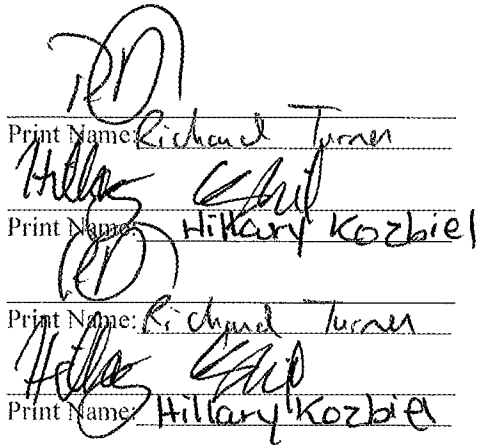 Print Name: Richard Turner
Hillary
Print Name: Hillary Kozbiel
Print Name: Richard Turner
Hillary
Print Name: Hillary Kozbiel